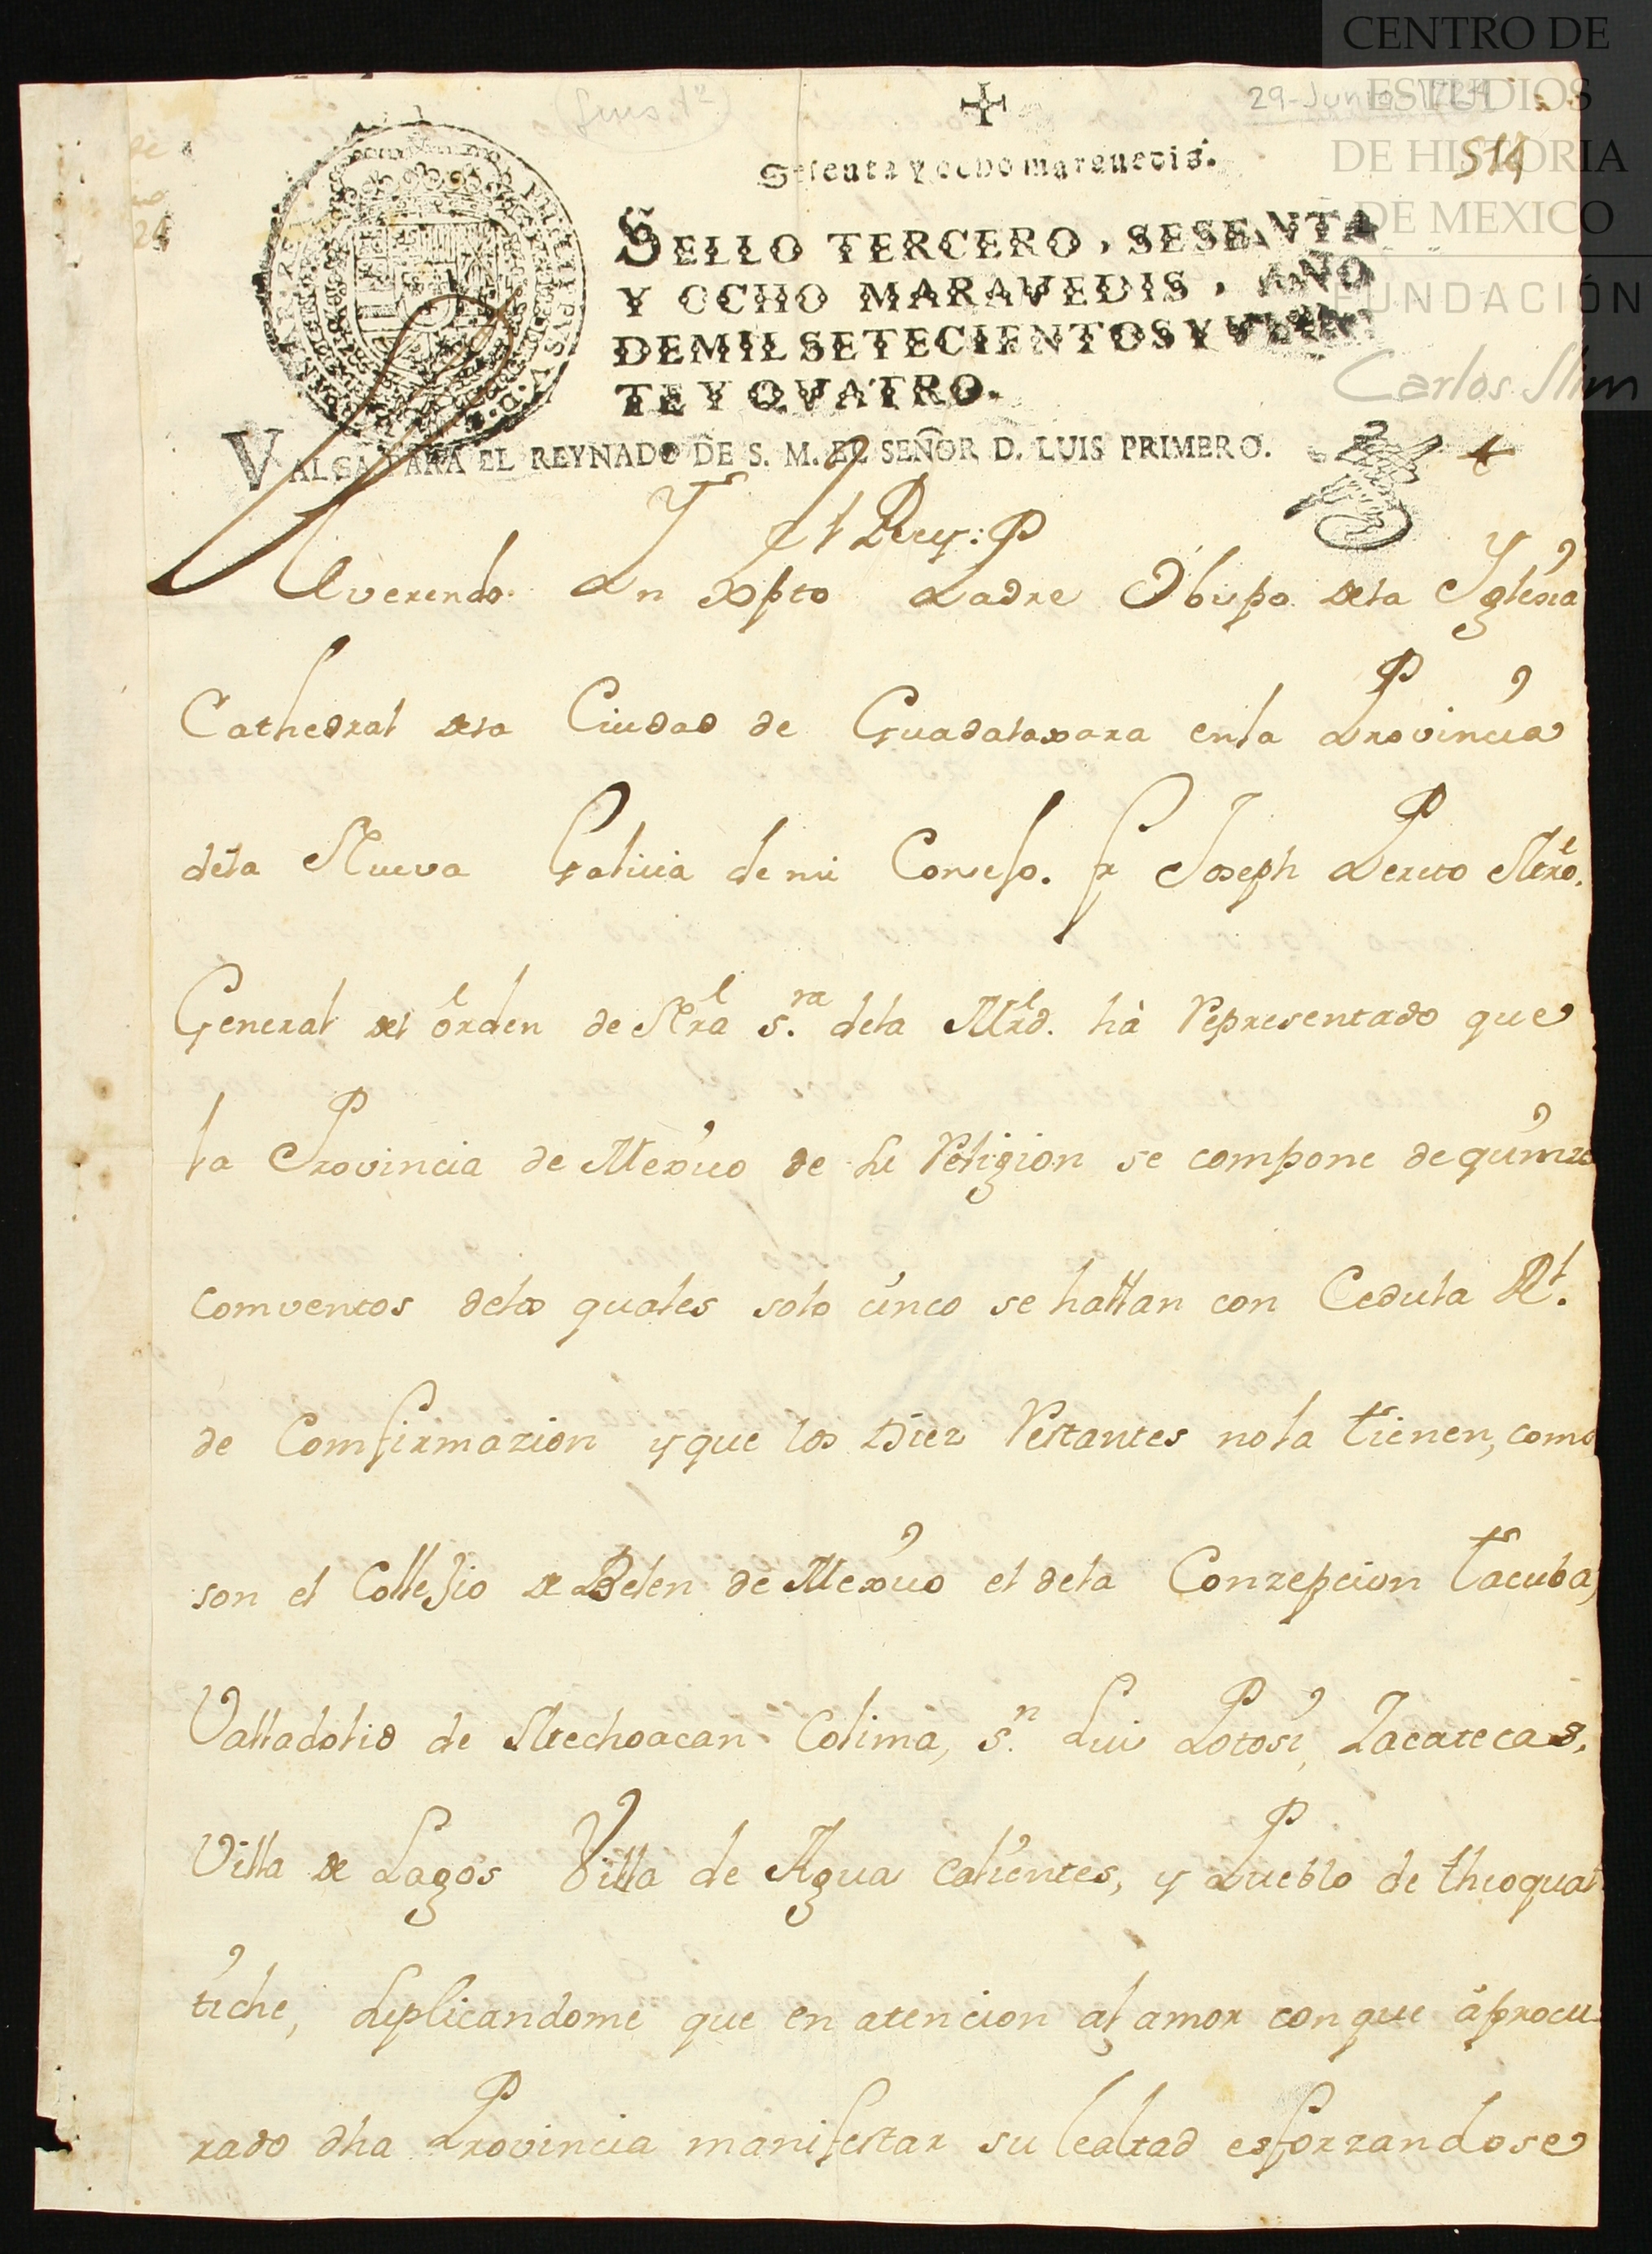 CENTRO DE
ESTUDIOS
DE HISTORIA
DE MEXICO
FUNDACIÓN
Carlos Slim
29-Junio-1724
(Luis 1º)
514
Sesenta y ocho marauedis.
SELLO TERCERO, SESENTA
Y OCHO MARAVEDIS, AÑO
DEMIL SETECIENTOS Y VEIN
TE Y QVATRO.
VALGA PARA EL REYNADO DE S. M. EL SEÑOR D. LUIS PRIMERO.
El Rey:
Reverendo en Xpto Padre Obispo dela Yglesia
Cathedral dela Ciudad de Guadalaxara enla Provincia
dela Nueva Galicia de mi Consejo. fr Joseph Pereto Mrõ.
General del orden de Nrã s.ra dela Mrd. hà Representado que
la Provincia de Mexico de su Religion se compone de quinze
comventos delos quales solo cinco se hallan con Cedula Rl.
de Comfirmazion y que los Diez Restantes nola tienen, como
son el Collejio de Belen de Mexico el dela Conzepcion Tacuba,
Valladolid de Mechoacan Colima, s.n Luis Potosi, Zacatecas,
Villa de Lagos Villa de Agua calientes, y Pueblo de theoqual
tiche, suplicandome que en atencion al amor con que à procu-
rado dha Provincia manifestar su lealtad esforzandose